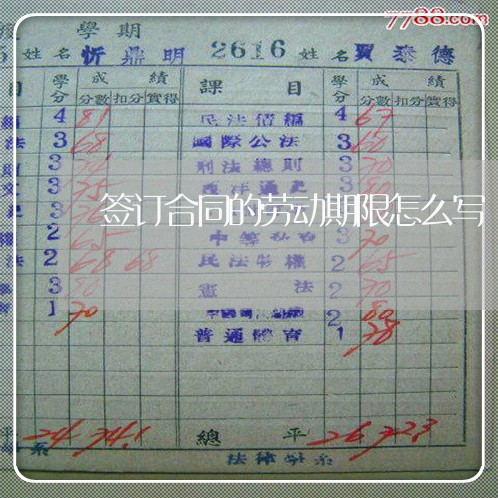 7788.com
學期
姓名 忻鼎明 2616 姓名 賈泰德
目 學分 成績 課目 學分 成績
分數 扣分 實得 分數 扣分 實得
4 81 民法債編 4 67
法 3 68 國際公法 3 60
3 刑法總則 3 70
文 3 75 西洋通史 3 80
3 76
签订合同的劳动期限怎么写
2 65 3 70
法 2 68 68 民法物權 2 65
3 80 憲法 2 70
1 70 2 80
普通體育 1 78
平 24 74.1 總平 26 72.3
系 法律學系